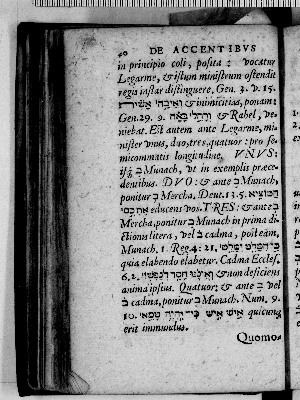 40 DE ACCENTIBVS
in principio coli, posita: vocatur
Legarme, & istum ministrum ostendit
regis instar distinguere. Gen. 3. v. 15.
וְאֵיבָה אָשִׁית & inimicitias, ponam:
Gen. 29. 9. וְרָחֵל בָּאָה & Rahel, ve-
niebat. Est autem ante Legarme, mi-
nister vnus, duo, tres, quatuor: pro se-
micommatis longitudine. VNVS:
Munach, vt in exemplis præce-
dentibus. DVO: & ante Munach,
ponitur Mercha. Deut. 13. 5. הַמּוֹצִיא
אֶתְכֶם educens vos. TRES: & ante
Mercha, ponitur Munach in prima di-
ctionis litera, vel cadma, posteam,
Munach. 1. Reg. 4: 21.
quia elabendo elabetur. Cadma Eccles.
6. 2. וְאֵינֶנּוּ חָסֵר לְנַפְשׁוֹ & non deficiens
anima ipsius. Quatuor: & ante vel
cadma, ponitur Munach. Num. 9.
10. אִישׁ אִישׁ כִּי יִהְיֶה טָמֵא quicunq
erit immundus.
Quomo-